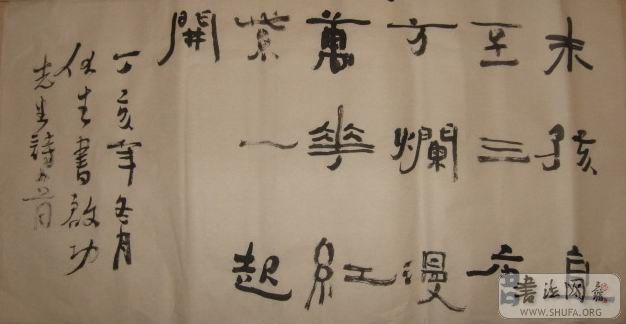 未孩
至三
方爛漫
萬華紅
紫一起
開
丁亥年冬月
書啟功
先生詩一首
書法网
WWW.SHUFA.ORG